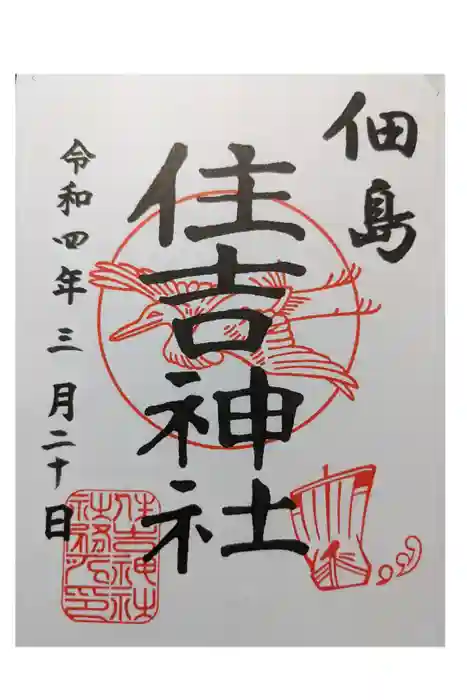 佃島
住吉神社
令和四年三月二十日
住吉神社
社務所印